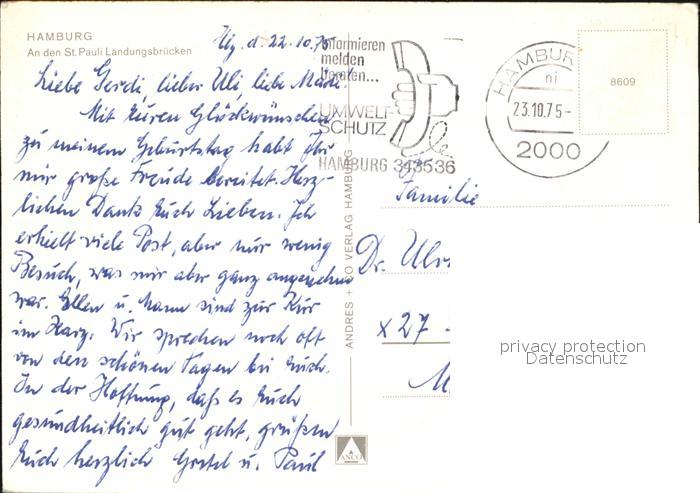 HAMBURG
An den St. Pauli Landungsbrücken
Hbg. d. 22.10.75
Liebe Gerdi, lieber Uli, liebe
Mit Euren Glückwünschen
zu meinem Geburtstag habt Ihr
mir große Freude bereitet. Herz-
lichen Dank Euch Lieben. Ich
erhielt viele Post, aber nur wenig
Besuch, was mir aber ganz angenehm
war. Ellen u. Mann sind zur Kur
im Harz. Wir sprechen noch oft
von den schönen Tagen bei Euch.
In der Hoffnung, daß es Euch
gesundheitlich gut geht, grüßen
Euch herzlich Gretel u. Paul
informieren
melden
beraten...
UMWELT-
SCHUTZ
HAMBURG 343536
HAMBURG
23.10.75-
2000
8609
Familie
Dr. Ulr
x 27
M
ANDRES + CO VERLAG HAMBURG
ANCO
privacy protection
Datenschutz